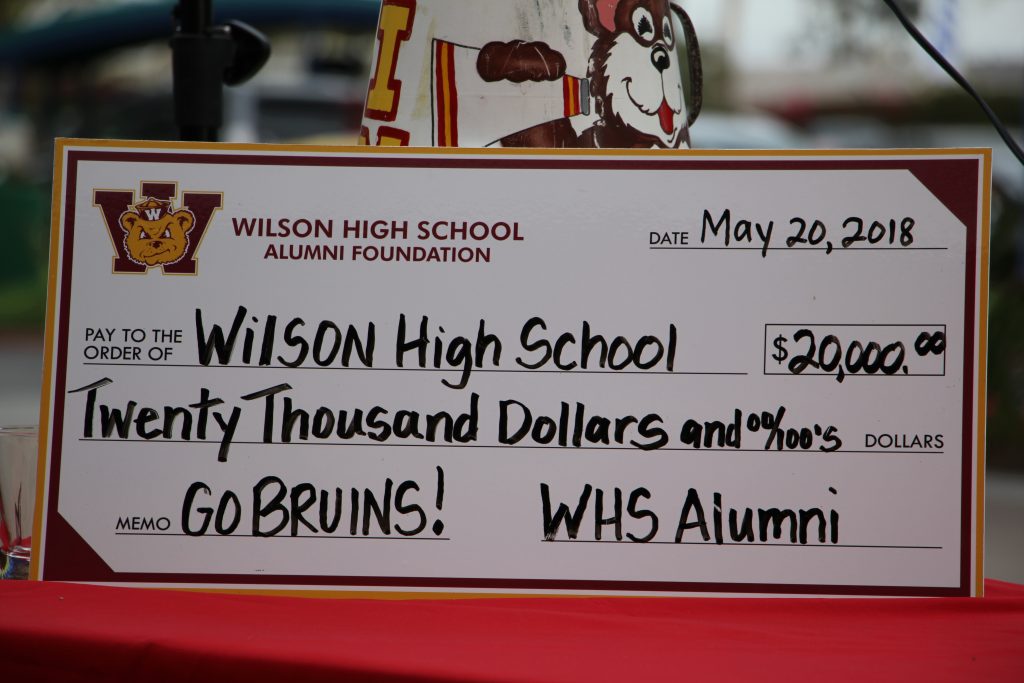 I
W
W
WILSON HIGH SCHOOL
ALUMNI FOUNDATION
DATE May 20, 2018
PAY TO THE
ORDER OF Wilson High School $20,000.00
Twenty Thousand Dollars and 00/100's DOLLARS
MEMO GO BRUINS! WHS Alumni